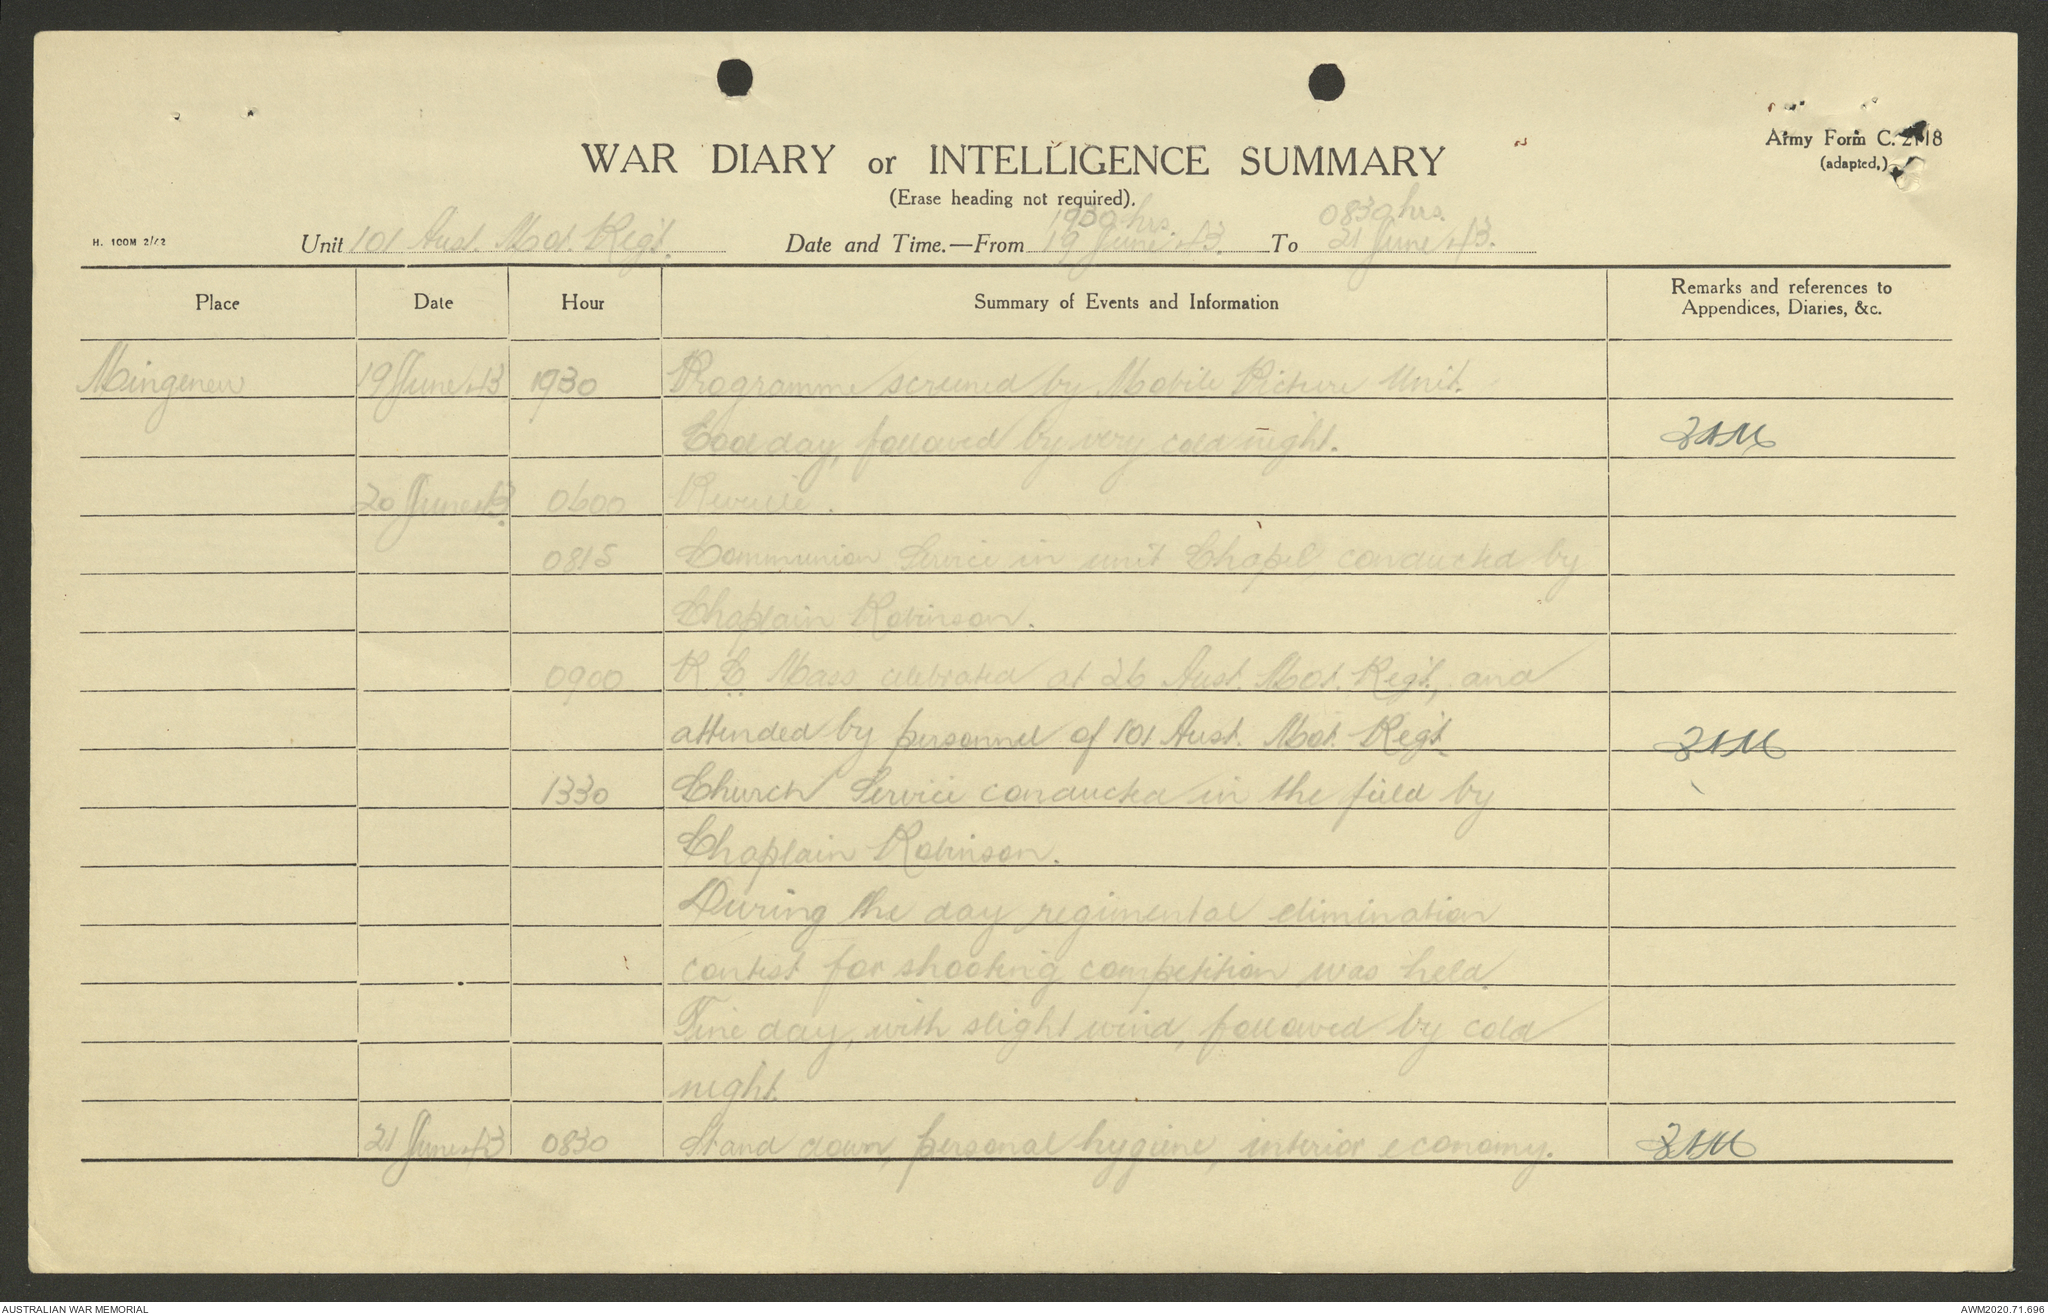 Army Form C. 2118
(adapted.)
WAR DIARY or INTELLIGENCE SUMMARY
(Erase heading not required).
H. 100M 2/42
Unit 101 Aust. Mot. Regt. Date and Time.—From 1930 hrs. 19 June 43. To 0830 hrs. 21 June 43.
Place Date Hour Summary of Events and Information Remarks and references to
Appendices, Diaries, &c.
Mingenew 19 June 43 1930 Programme screened by Mobile Picture Unit.
Cool day, followed by very cold night.
20 June 43. 0600 Reveille.
0815 Communion Service in unit Chapel, conducted by
Chaplain Robinson.
0900 R.C. Mass celebrated at 26 Aust. Mot. Regt., and
attended by personnel of 101 Aust. Mot. Regt.
1330 Church Service conducted in the field by
Chaplain Robinson.
During the day regimental elimination
contest for shooting competition was held.
Fine day, with slight wind, followed by cold
night.
21 June 43 0830 Stand down, personal hygiene, interior economy.
AUSTRALIAN WAR MEMORIAL
AWM2020.71.696